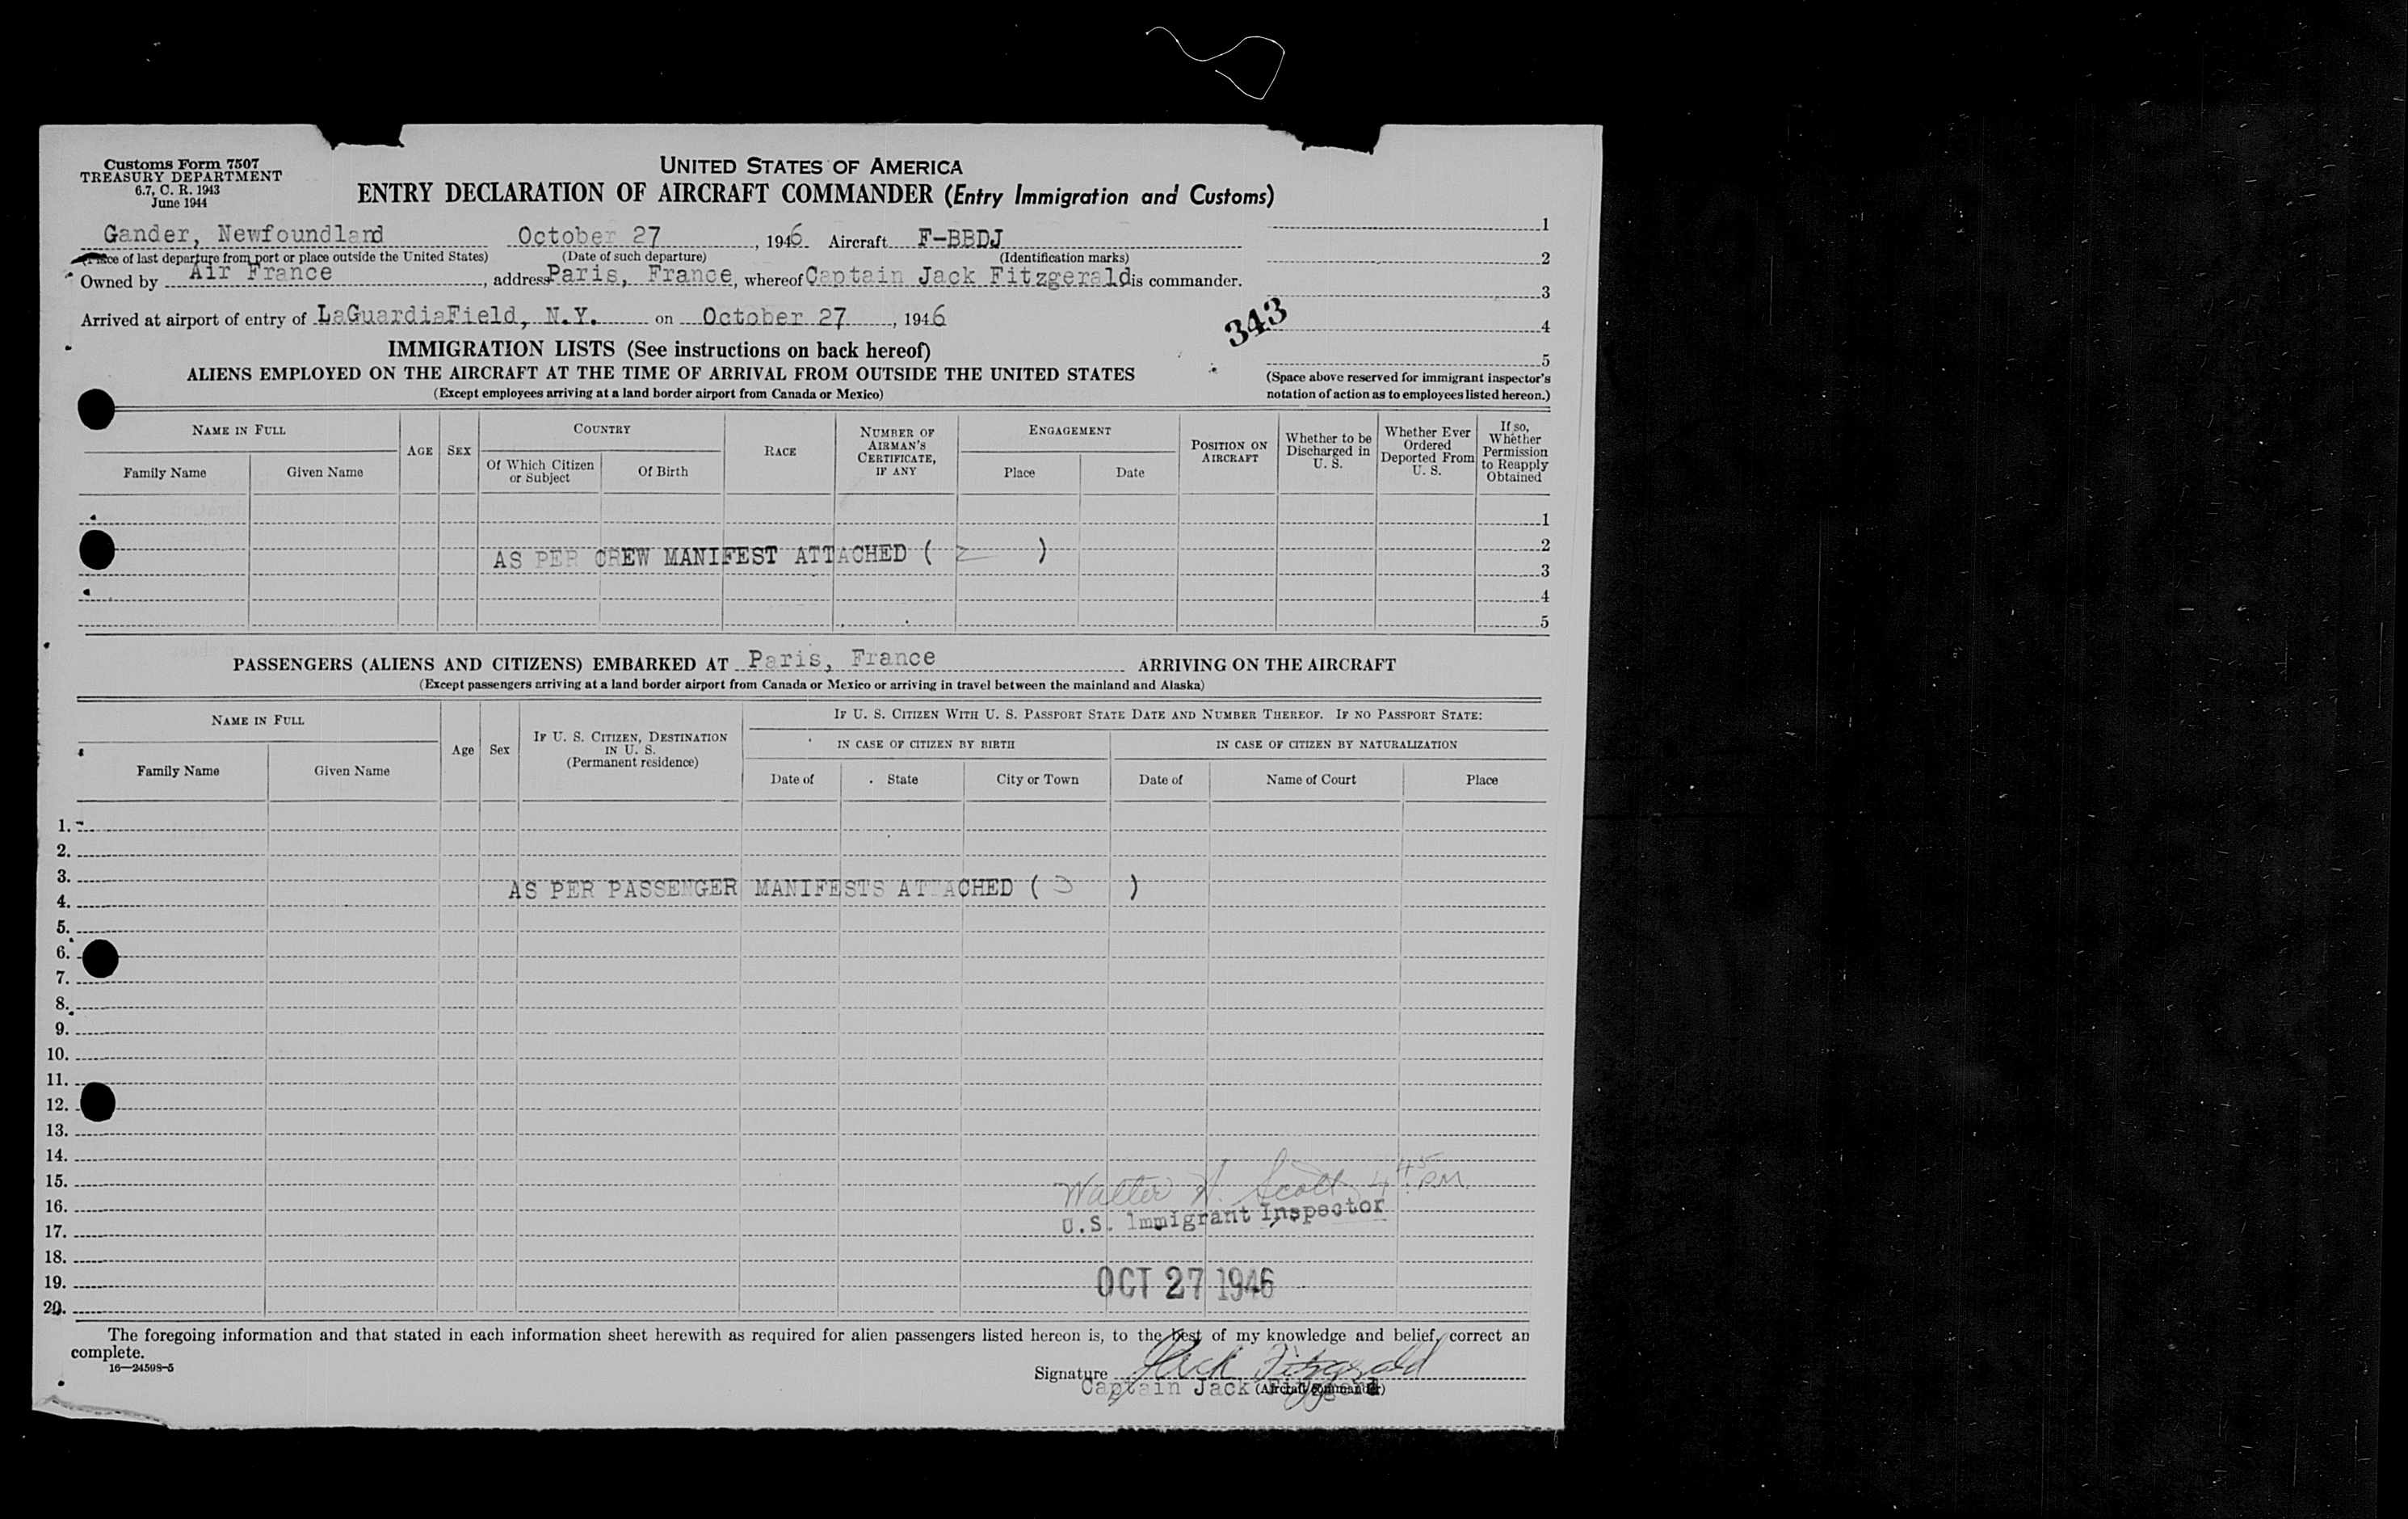 Customs Form 7507
TREASURY DEPARTMENT
6.7, C. R. 1943
June 1944
UNITED STATES OF AMERICA
ENTRY DECLARATION OF AIRCRAFT COMMANDER (Entry Immigration and Customs)
Gander, Newfoundland October 27, 1946 Aircraft F-BBDJ
(Place of last departure from port or place outside the United States) (Date of such departure) (Identification marks)
Owned by Air France, address Paris, France, whereof Captain Jack Fitzgerald is commander.
Arrived at airport of entry of LaGuardiaField, N.Y. on October 27, 1946
1
2
3
4
5
343
(Space above reserved for immigrant inspector's
notation of action as to employees listed hereon.)
IMMIGRATION LISTS (See instructions on back hereof)
ALIENS EMPLOYED ON THE AIRCRAFT AT THE TIME OF ARRIVAL FROM OUTSIDE THE UNITED STATES
(Except employees arriving at a land border airport from Canada or Mexico)
NAME IN FULL
Family Name Given Name
AGE
SEX
COUNTRY
Of Which Citizen or Subject
Of Birth
RACE
NUMBER OF AIRMAN'S CERTIFICATE, IF ANY
ENGAGEMENT
Place Date
POSITION ON AIRCRAFT
Whether to be Discharged in U. S.
Whether Ever Ordered Deported From U. S.
If so, Whether Permission to Reapply Obtained
1
2
AS PER CREW MANIFEST ATTACHED ( 2 )
3
4
5
PASSENGERS (ALIENS AND CITIZENS) EMBARKED AT Paris, France ARRIVING ON THE AIRCRAFT
(Except passengers arriving at a land border airport from Canada or Mexico or arriving in travel between the mainland and Alaska)
NAME IN FULL
Family Name Given Name
Age
Sex
IF U. S. CITIZEN, DESTINATION IN U. S. (Permanent residence)
IF U. S. CITIZEN WITH U. S. PASSPORT STATE DATE AND NUMBER THEREOF. IF NO PASSPORT STATE:
IN CASE OF CITIZEN BY BIRTH
Date of State City or Town
IN CASE OF CITIZEN BY NATURALIZATION
Date of Name of Court Place
1.
2.
3.
AS PER PASSENGER MANIFESTS ATTACHED ( 3 )
4.
5.
6.
7.
8.
9.
10.
11.
12.
13.
14.
15.
Walter H. Scott 4 45 PM
16.
U.S. Immigrant Inspector
17.
18.
19.
OCT 27 1946
20.
The foregoing information and that stated in each information sheet herewith as required for alien passengers listed hereon is, to the best of my knowledge and belief, correct an
complete.
16—24598-5
Signature Jack Fitzgerald
Captain Jack Fitzgerald (Aircraft commander)